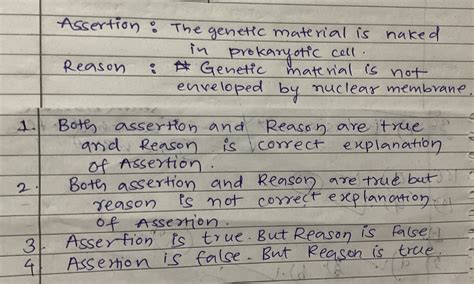 Assertion : The genetic material is naked
in prokaryotic cell.
Reason : Genetic material is not
enveloped by nuclear membrane.
1. Both assertion and Reason are true
and Reason is correct explanation
of Assertion.
2. Both assertion and Reason are true but
reason is not correct explanation
of Assertion.
3. Assertion is true. But Reason is false
4. Assertion is false. But Reason is true.